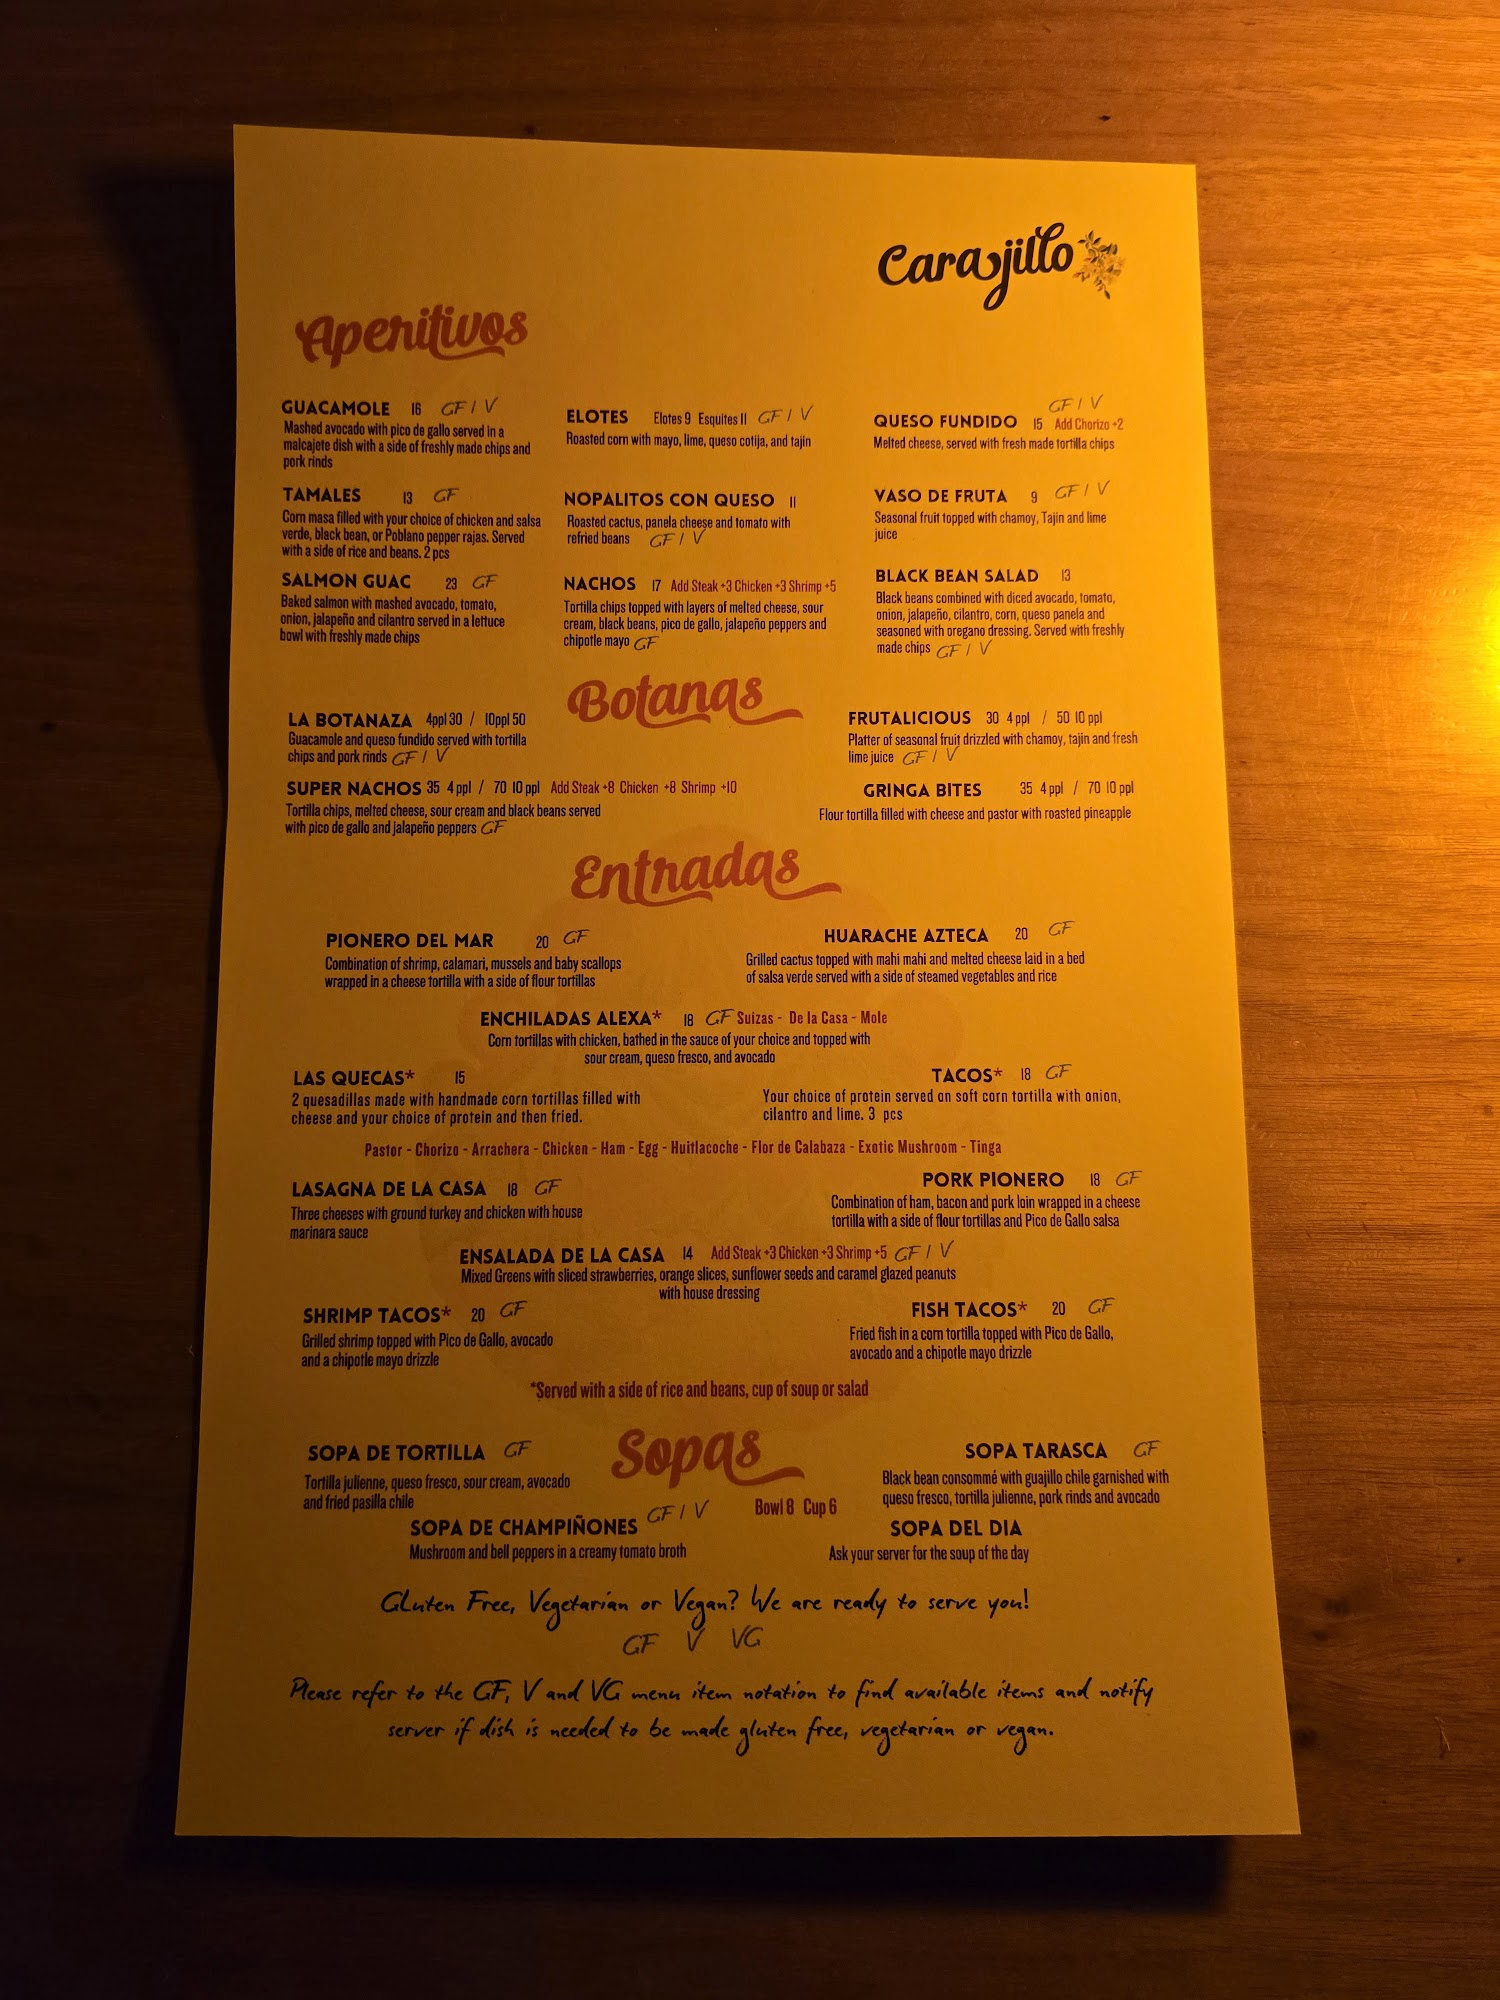 Carajillo
Aperitivos
GUACAMOLE 16 GF / V
Mashed avocado with pico de gallo served in a
malcajete dish with a side of freshly made chips and
pork rinds
ELOTES Elotes 9 Esquites 11 GF / V
Roasted corn with mayo, lime, queso cotija, and tajin
GF / V
QUESO FUNDIDO 15 Add Chorizo +2
Melted cheese, served with fresh made tortilla chips
TAMALES 13 GF
Corn masa filled with your choice of chicken and salsa
verde, black bean, or Poblano pepper rajas. Served
with a side of rice and beans. 2 pcs
NOPALITOS CON QUESO 11
Roasted cactus, panela cheese and tomato with
refried beans GF / V
VASO DE FRUTA 9 GF / V
Seasonal fruit topped with chamoy, Tajin and lime
juice
SALMON GUAC 23 GF
Baked salmon with mashed avocado, tomato,
onion, jalapeño and cilantro served in a lettuce
bowl with freshly made chips
NACHOS 17 Add Steak +3 Chicken +3 Shrimp +5
Tortilla chips topped with layers of melted cheese, sour
cream, black beans, pico de gallo, jalapeño peppers and
chipotle mayo GF
BLACK BEAN SALAD 13
Black beans combined with diced avocado, tomato,
onion, jalapeño, cilantro, corn, queso panela and
seasoned with oregano dressing. Served with freshly
made chips GF / V
Botanas
LA BOTANAZA 4ppl 30 / 10ppl 50
Guacamole and queso fundido served with tortilla
chips and pork rinds GF / V
FRUTALICIOUS 30 4 ppl / 50 10 ppl
Platter of seasonal fruit drizzled with chamoy, tajin and fresh
lime juice GF / V
SUPER NACHOS 35 4 ppl / 70 10 ppl Add Steak +8 Chicken +8 Shrimp +10
Tortilla chips, melted cheese, sour cream and black beans served
with pico de gallo and jalapeño peppers GF
GRINGA BITES 35 4 ppl / 70 10 ppl
Flour tortilla filled with cheese and pastor with roasted pineapple
Entradas
PIONERO DEL MAR 20 GF
Combination of shrimp, calamari, mussels and baby scallops
wrapped in a cheese tortilla with a side of flour tortillas
HUARACHE AZTECA 20 GF
Grilled cactus topped with mahi mahi and melted cheese laid in a bed
of salsa verde served with a side of steamed vegetables and rice
ENCHILADAS ALEXA* 18 GF Suizas - De la Casa - Mole
Corn tortillas with chicken, bathed in the sauce of your choice and topped with
sour cream, queso fresco, and avocado
LAS QUECAS* 15
2 quesadillas made with handmade corn tortillas filled with
cheese and your choice of protein and then fried.
TACOS* 18 GF
Your choice of protein served on soft corn tortilla with onion,
cilantro and lime. 3 pcs
Pastor - Chorizo - Arrachera - Chicken - Ham - Egg - Huitlacoche - Flor de Calabaza - Exotic Mushroom - Tinga
LASAGNA DE LA CASA 18 GF
Three cheeses with ground turkey and chicken with house
marinara sauce
PORK PIONERO 18 GF
Combination of ham, bacon and pork loin wrapped in a cheese
tortilla with a side of flour tortillas and Pico de Gallo salsa
ENSALADA DE LA CASA 14 Add Steak +3 Chicken +3 Shrimp +5 GF / V
Mixed Greens with sliced strawberries, orange slices, sunflower seeds and caramel glazed peanuts
with house dressing
SHRIMP TACOS* 20 GF
Grilled shrimp topped with Pico de Gallo, avocado
and a chipotle mayo drizzle
FISH TACOS* 20 GF
Fried fish in a corn tortilla topped with Pico de Gallo,
avocado and a chipotle mayo drizzle
*Served with a side of rice and beans, cup of soup or salad
Sopas
Bowl 8 Cup 6
SOPA DE TORTILLA GF
Tortilla julienne, queso fresco, sour cream, avocado
and fried pasilla chile
SOPA TARASCA GF
Black bean consommé with guajillo chile garnished with
queso fresco, tortilla julienne, pork rinds and avocado
SOPA DE CHAMPIÑONES GF / V
Mushroom and bell peppers in a creamy tomato broth
SOPA DEL DIA
Ask your server for the soup of the day
Gluten Free, Vegetarian or Vegan? We are ready to serve you!
GF V VG
Please refer to the GF, V and VG menu item notation to find available items and notify
server if dish is needed to be made gluten free, vegetarian or vegan.